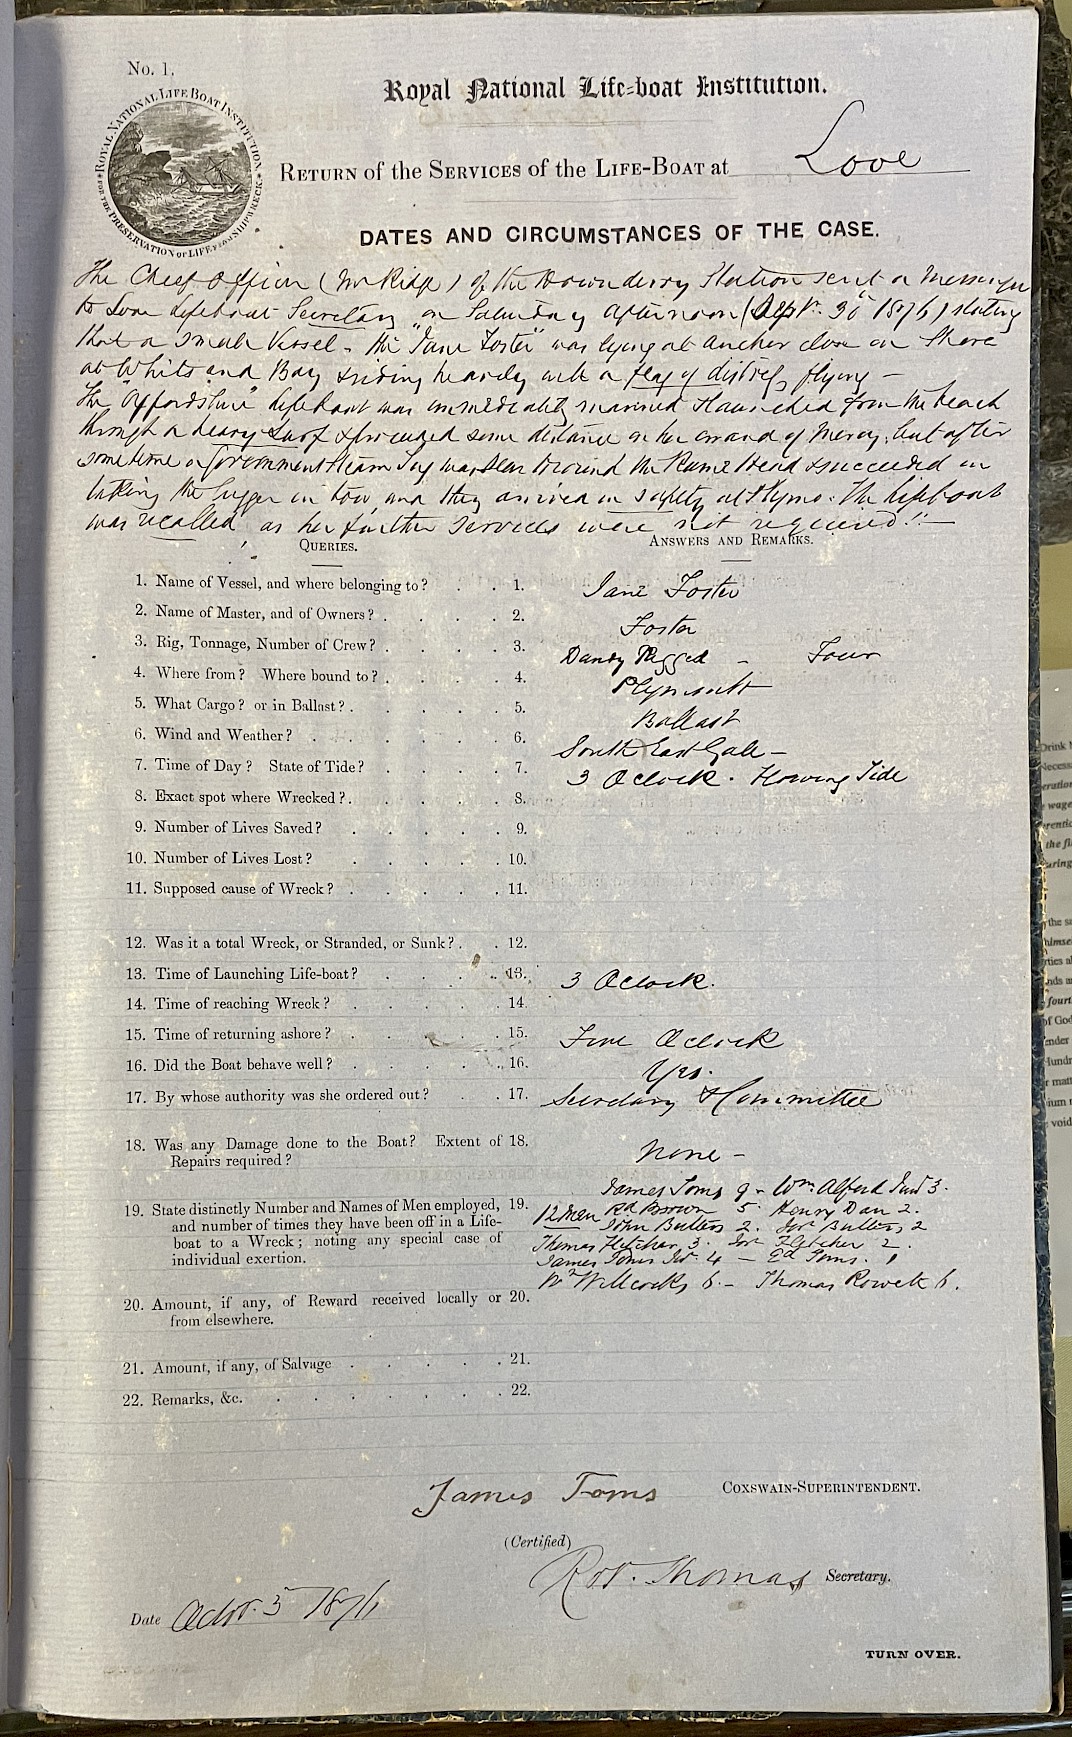 No. 1.
ROYAL NATIONAL LIFE BOAT INSTITUTION
FOR THE PRESERVATION OF LIFE FROM SHIPWRECK.
Royal National Life-boat Institution.
RETURN of the SERVICES of the LIFE-BOAT at Looe
DATES AND CIRCUMSTANCES OF THE CASE.
The Chief Officer (Mr Ridge) of the Downderry Station sent a Messenger
to Looe Lifeboat Secretary on Saturday afternoon (Sept. 30 1876) stating
that a small Vessel - the "Jane Foster" was lying at anchor close on Shore
at Whitsand Bay & riding heavily with a flag of distress flying -
The "Oxfordshire" Lifeboat was immediately manned & launched from the beach
through a heavy Surf & proceeded some distance on her errand of Mercy, but after
sometime a Government Steam Tug was seen to round the Rame Head & succeeded in
taking the Lugger in tow, and they arrived in safety at Plymo. The Lifeboat
was recalled, as her further services were not required!! -
QUERIES.
ANSWERS AND REMARKS.
1. Name of Vessel, and where belonging to? . . 1. Jane Foster
2. Name of Master, and of Owners? . . . . 2. Foster
3. Rig, Tonnage, Number of Crew? . . . . 3. Dandy Rigged - Four
4. Where from? Where bound to? . . . . 4. Plymouth
5. What Cargo? or in Ballast? . . . . 5. Ballast
6. Wind and Weather? . . . . . 6. South East Gale -
7. Time of Day? State of Tide? . . . . 7. 3 OClock. Flowing Tide
8. Exact spot where Wrecked? . . . . 8.
9. Number of Lives Saved? . . . . . 9.
10. Number of Lives Lost? . . . . 10.
11. Supposed cause of Wreck? . . . . 11.
12. Was it a total Wreck, or Stranded, or Sunk? . . 12.
13. Time of Launching Life-boat? . . . . 13. 3 OClock.
14. Time of reaching Wreck? . . . . 14.
15. Time of returning ashore? . . . . 15. OClock
16. Did the Boat behave well? . . . . 16. Yes.
17. By whose authority was she ordered out? . . 17. Secretary & Committee
18. Was any Damage done to the Boat? Extent of 18. None -
Repairs required?
James Toms 9 - Wm. Alford Junr 3.
19. State distinctly Number and Names of Men employed, 19. 12 Men Rd Brown 5. Henry Dan 2.
and number of times they have been off in a Life- John Butters 2. Butters 2
boat to a Wreck; noting any special case of Thomas Fletcher 3. Fletcher 2.
individual exertion. James Toms Jr. 4 - Ed Toms. 1
Wm Willcocks 6. - Thomas Rowett 6.
20. Amount, if any, of Reward received locally or 20.
from elsewhere.
21. Amount, if any, of Salvage . . . . 21.
22. Remarks, &c. . . . . . . 22.
James Toms COXSWAIN-SUPERINTENDENT.
(Certified)
Robt. Thomas Secretary.
Date Octbr. 5 1876
TURN OVER.